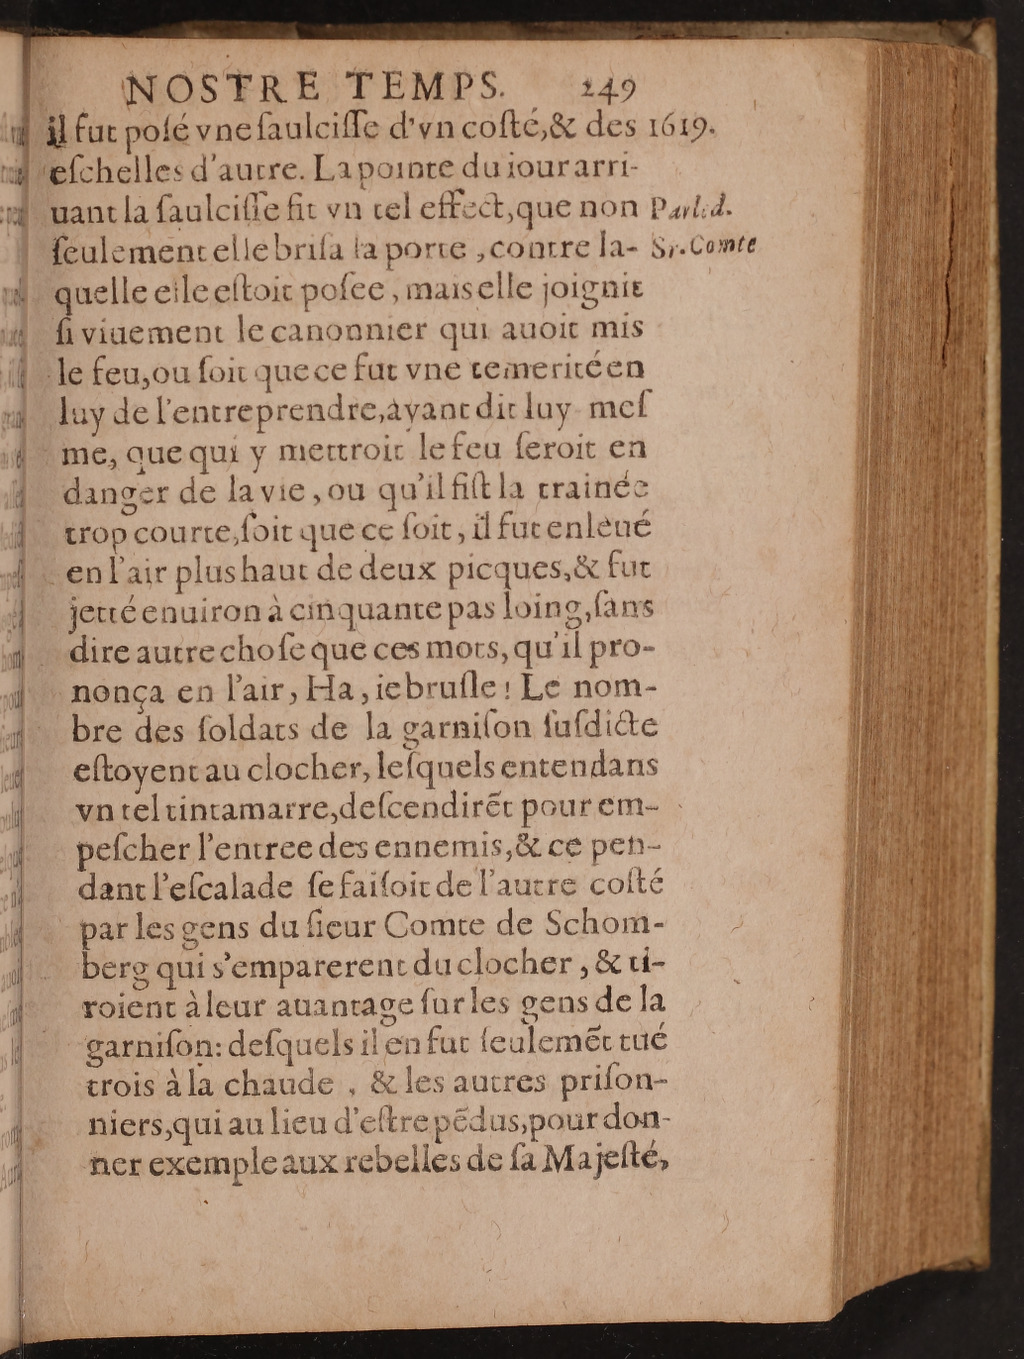 NOSTRE TEMPS. 249
il fut posé vne saulcisse d'vn costé,& des 1619.
eschelles d'autre. La pointe du iour arri-
uant la saulcisse fit vn tel effect,que non Par l.d.
seulement elle brisa la porte ,contre la- Sr.Comte
quelle elle estoit posee, mais elle joignit
si viuement le canonnier qui auoit mis
le feu,ou soit que ce fut vne temerité en
luy de l'entreprendre,ayant dit luy mes
me, que qui y mettroit le feu seroit en
danger de la vie,ou qu'il fist la trainée
trop courte,soit que ce soit, il fut enleué
en l'air plus haut de deux picques,& fut
jetté enuiron à cinquante pas loing,sans
dire autre chose que ces mots, qu'il pro-
nonça en l'air, Ha, ie brusle: Le nom-
bre des soldats de la garnison susdicte
estoyent au clocher, lesquels entendans
vn tel tintamarre,descendirēt pour em-
pescher l'entree des ennemis,& ce pen-
dant l'escalade se faisoit de l'autre costé
par les gens du sieur Comte de Schom-
berg qui s'emparerent du clocher ,& ti-
roient à leur auantage sur les gens de la
garnison: desquels il en fut seulemēt tué
trois à la chaude , & les autres prison-
niers,qui au lieu d'estre pēdus,pour don-
ner exemple aux rebelles de sa Majesté,